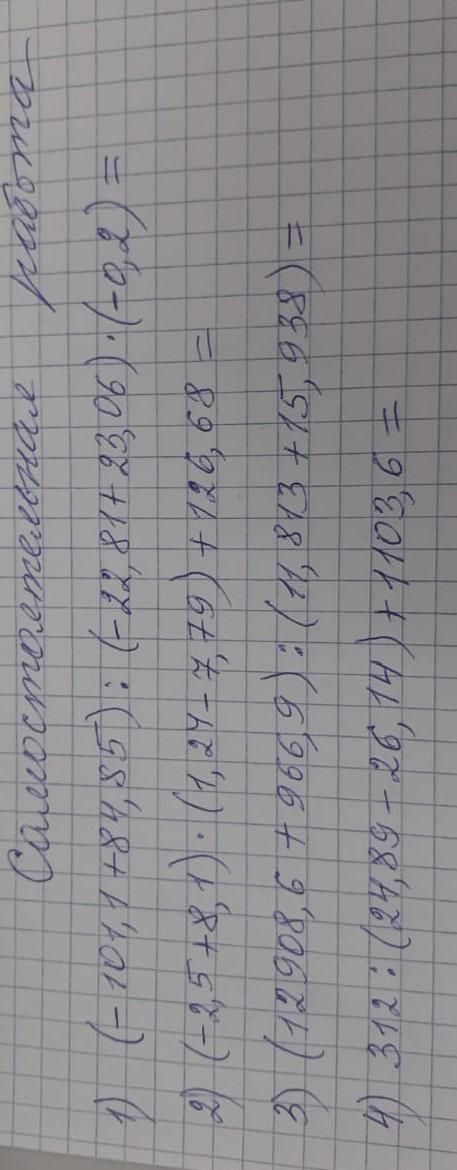 Самостоятельная работа
1) (-101,1+84,85):(-22,81+23,06)·(-0,2)=
2) (-2,5+8,1)·(1,24-7,79)+126,68=
3) (12908,6+966,9):(11,813+15,938)=
4) 312:(24,89-26,14)+1103,6=